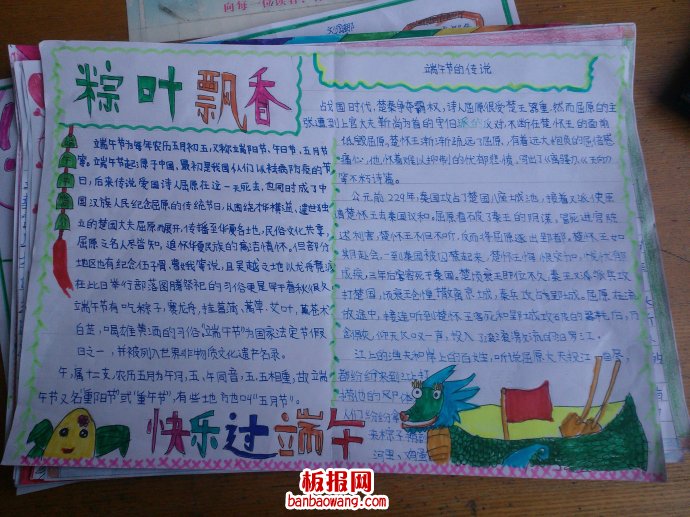 向每一位读者
粽叶飘香
端午节为每年农历五月初五，又称端阳节、午日节、五月节
等。端午节起源于中国，最初是我国人们以祛病防疫的节
日，后来传说爱国诗人屈原在这一天死去，也同时成了中
国汉族人民纪念屈原的传统节日，以围绕才华横溢、遗世独
立的楚国大夫屈原而展开，传播至华夏各地，民俗文化共享，
屈原之名人尽皆知，追怀华夏民族的高洁情怀。但部分
地区也有纪念伍子胥、曹娥等说，且吴越之地以龙舟竞渡
在此日举行部落图腾祭祀的习俗更是早于春秋很久
端午节有吃粽子，赛龙舟，挂菖蒲、蒿草、艾叶，薰苍术
白芷，喝雄黄酒的习俗。"端午节"为国家法定节假
日之一，并被列入世界非物质文化遗产名录。
午，属十二支，农历五月为午月，五、午同音，五、五相重，故端
午节又名"重阳节"或"重午节"，有些地方也叫"五月节"。
快乐过端午
端午节的传说
战国时代，楚秦争夺霸权，诗人屈原很受楚王器重，然而屈原的主
张遭到上官大夫靳尚为首的守旧派的反对，不断在楚怀王的面前
低毁屈原，楚怀王渐渐疏远了屈原，有着远大抱负的屈原倍感
痛心，他怀着难以抑制的忧郁悲愤，写出了《离骚》、《天向》
等不朽诗篇。
公元前229年，秦国攻占了楚国八座城池，接着又派使臣
请楚怀王去秦国议和。屈原看破了秦王的阴谋，冒死进宫陈
述利害，楚怀王不但不听，反而将屈原逐出郢都。楚怀王如
期赴会，一到秦国被囚禁起来，楚怀王悔恨交加，忧郁
成疾，三年后客死于秦国。楚顷衰王即位不久，秦王又派兵攻
打楚国，顷衰王仓惶撤离京城，秦兵攻占郢城。屈原在流
放途中，接连听到楚怀王客死和郢城攻破的噩耗后，万
念俱灰，仰天长叹一声，投入了滚滚激流的汨罗江。
江上的渔夫和岸上的百姓，听说屈原大夫投江自尽，
都纷纷来到江上打
捞他的尸体
人们纷纷拿
来粽子、鸡蛋
河里，
板报网
banbaowang.com